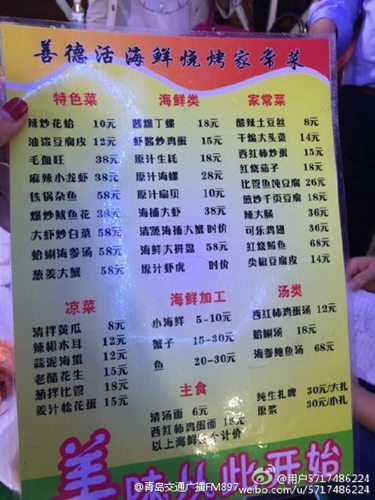 善德活海鲜烧烤家常菜
特色菜
辣炒花蛤 10元
油泼豆腐皮 12元
毛血旺 38元
麻辣小龙虾 38元
铁锅杂鱼 58元
爆炒鱿鱼花 38元
大虾炒白菜 58元
蛤蜊海参汤 58元
葱姜大蟹 58元
海鲜类
酱爆丁螺 18元
虾酱炒鸡蛋 15元
原汁生蚝 18元
原汁海螺 28元
原汁扇贝 10元
海捕大虾 38元
清蒸海捕大虾 时价
海鲜大拼盘 58元
原汁虾虎 时价
家常菜
酸辣土豆丝 8元
干煸大头菜 14元
西红柿炒蛋 15元
红烧茄子 18元
比管鱼炖豆腐 26元
煎炒千页豆腐 18元
辣大肠 36元
可乐鸡翅 36元
红烧鲶鱼 68元
尖椒豆腐皮 14元
凉菜
清拌黄瓜 8元
辣根木耳 12元
蒜泥海蜇 12元
老醋花生 15元
葱拌比管 18元
姜汁松花蛋 15元
海鲜加工
小海鲜 5-10元
蟹子 15-30元
鱼 20-30元
主食
清汤面 6元
西红柿鸡蛋面 18元
以上海鲜 个计价
汤类
西红柿鸡蛋汤 12元
蛤蜊汤 18元
海参鲍鱼汤 68元
纯生扎啤 30元/大扎
原浆 30元/小扎
美味从此开始
@青岛交通广播FM897
@用户5717486224
weibo.com/u/5717486224